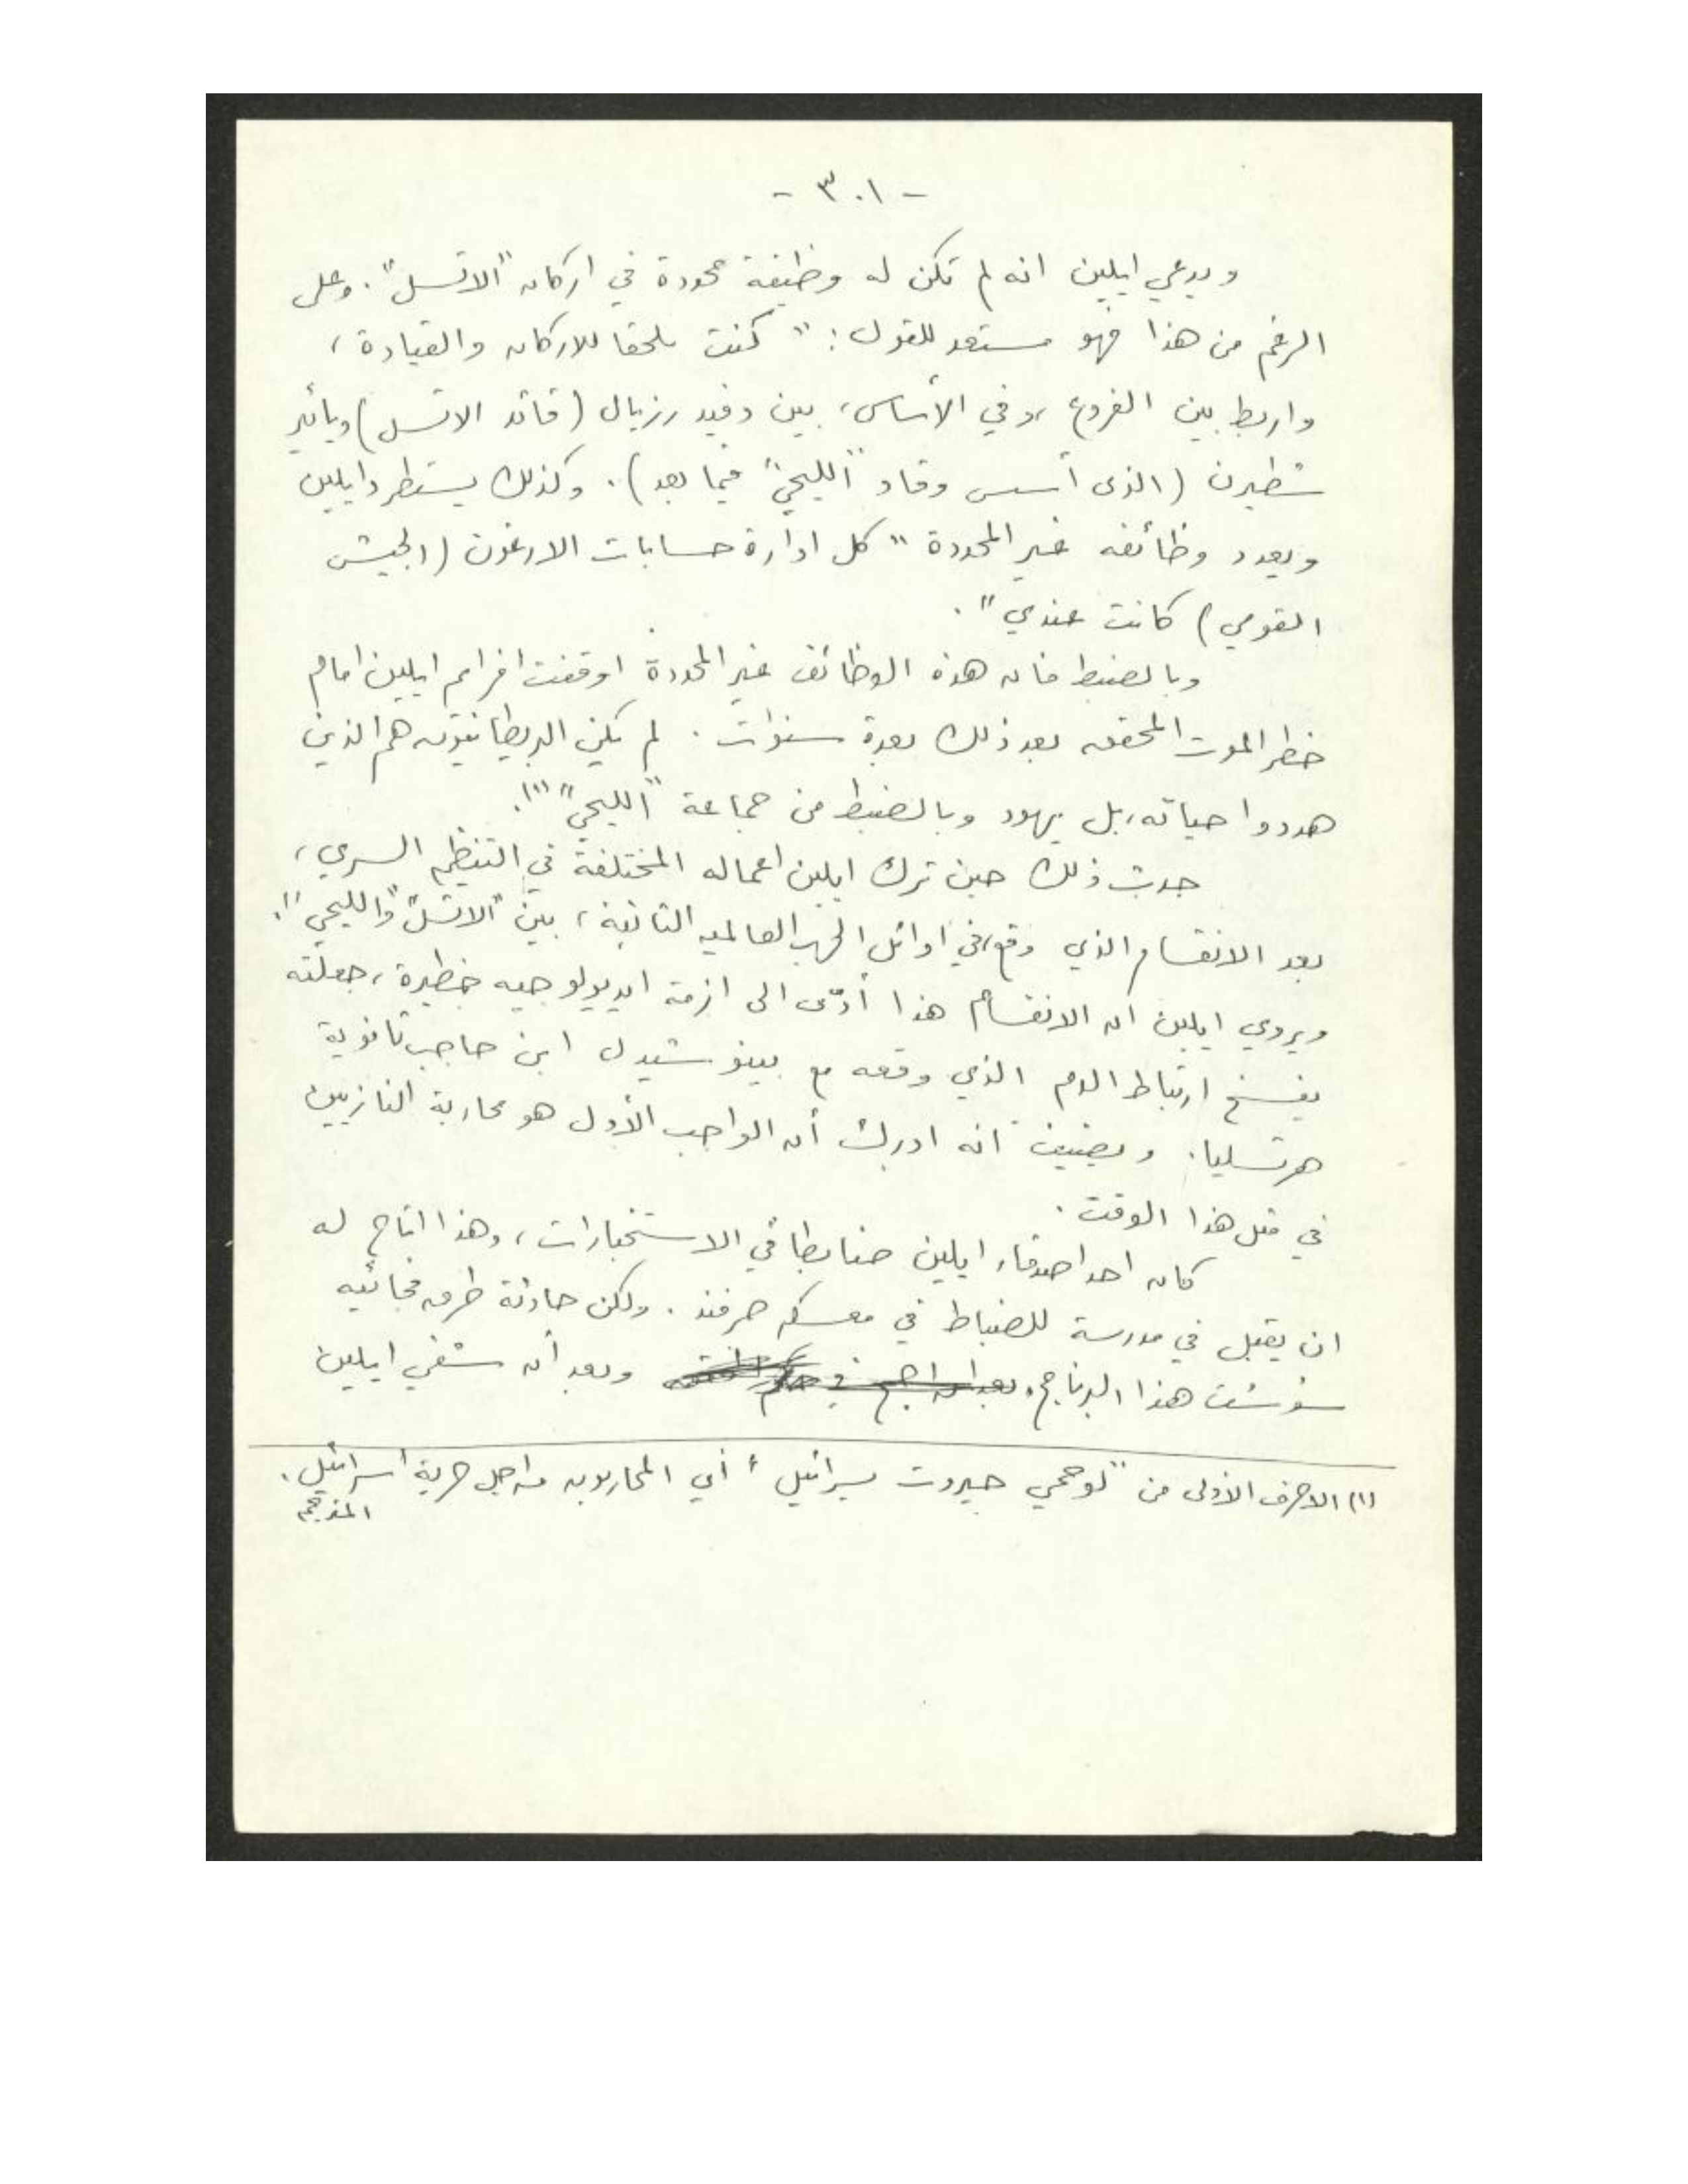 - ٣٠١ -
ويدعي ايلين انه لم تكن له وظيفة محددة في اركان "الاتسل". وعلى
الرغم من هذا فهو مستعد للقول: " كنت ملحقا للاركان والقيادة ،
واربط بين الفروع ، وفي الأساس، بين دفيد رزيال (قائد الاتسل) ويائير
شطيرن (الذى أسس وقاد "الليحي" فيما بعد). وكذلك يستطرد ايلين
ويعدد وظائفه غير المحددة " كل ادارة حسابات الارغون (الجيش
القومي) كانت عندي".
وبالضبط فان هذه الوظائف غير المحددة اوقفت افرايم ايلين امام
خطر الموت المحقق بعد ذلك بعدة سنوات . لم يكن البريطانيون هم الذين
هددوا حياته، بل يهود وبالضبط من جماعة "الليحي" (١).
حدث ذلك حين ترك ايلين اعماله المختلفة في التنظيم السري ،
بعد الانقسام الذي وقع، في اوائل الحرب العالميه الثانية ، بين "الاتسل" و"الليحي".
ويروي ايلين ان الانقسام هذا أدّى الى ازمة ايديولوجيه خطيرة ، جعلته
يفسخ ارتباط الدم الذي وقعه مع بينو شيدل ابن حاجب ثانوية
هرتسليا. ويضيف انه ادرك أن الواجب الأول هو محاربة النازيين
في مثل هذا الوقت .
كان احد اصدقاء ايلين ضابطا في الاستخبارات ، وهذا اتاح له
ان يقبل في مدرسة للضباط في معسكر صرفند . ولكن حادثة طرق فجائيه
شوشت هذا البرنامج. وبعد أن شفي ايلين
(١) الاحرف الأولى من "لوحمي حيروت يسرائيل" أي المحاربون من اجل حرية اسرائيل.
المترجم